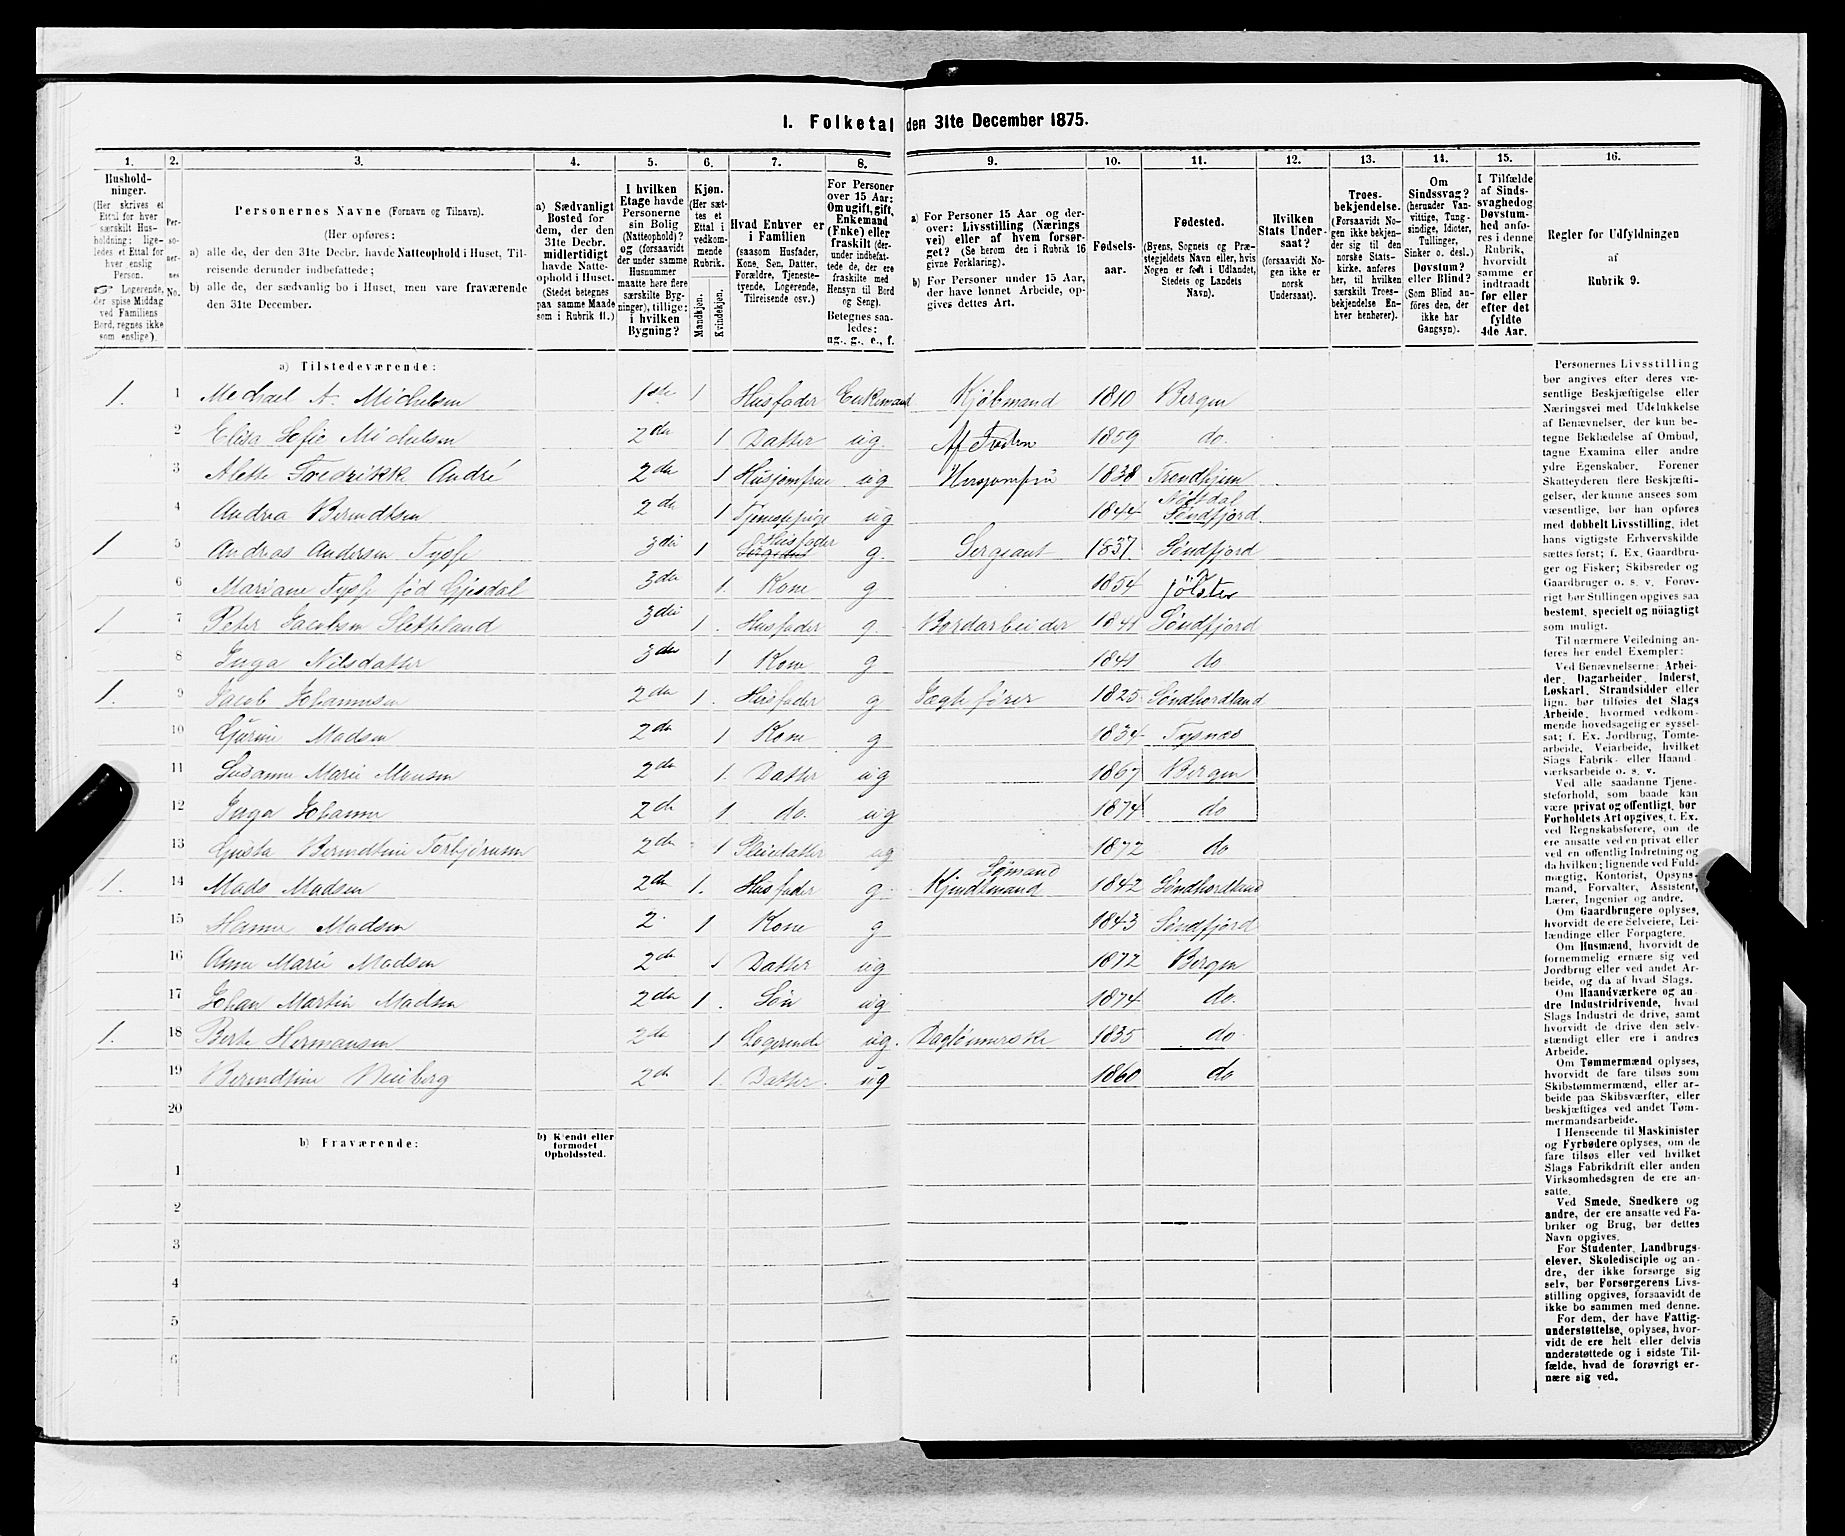 I. Folketal den 31te December 1875.
1. 2. 3. 4. 5. 6. 7. 8. 9. 10. 11. 12. 13. 14. 15. 16.
Husholdninger.
(Her skrives et
Ettal for hver
særskilt Hus-
holdning; lige-
ledes et Ettal for
hver enslig
Person.
☞ Logerende,
der spise Middag
ved Familiens
Bord, regnes ikke
som enslige).
Per-
so-
ner-
nes
No.
Personernes Navne (Fornavn og Tilnavn).
(Her opføres:
a) alle de, der den 31te Decbr. havde Natteophold i Huset, Til-
reisende derunder indbefattede;
b) alle de, der sædvanlig bo i Huset, men vare fraværende
den 31te December.
a) Sædvanligt
Bosted for
dem, der den
31te Decbr.
midlertidigt
havde Natte-
ophold i Huset.
(Stedet betegnes
paa samme Maade
som i Rubrik 11.)
I hvilken
Etage havde
Personerne
sin Bolig
(Natteophold)?
og (forsaavidt
der under samme
Husnummer
maatte høre flere
særskilte Byg-
ninger), tillige:
i hvilken
Bygning?
Kjøn.
(Her sæt-
tes et
Ettal i
vedkom-
mende
Rubrik.
Mandkjøn.
Kvindekjøn.
Hvad Enhver er
i Familien
(saasom Husfader,
Kone, Søn, Datter,
Forældre, Tjeneste-
tyende, Logerende,
Tilreisende osv.)
For Personer
over 15 Aar:
Om ugift, gift,
Enkemand
(Enke) eller
fraskilt (der-
under indbefat-
tede de, der ere
fraskilte med
Hensyn til Bord
og Seng).
Betegnes saa-
ledes:
ug., g., e., f.
a) For Personer 15 Aar og der-
over: Livsstilling (Nærings
vei) eller af hvem forsør-
get? (Se herom den i Rubrik 16
givne Forklaring).
b) For Personer under 15 Aar,
der have lønnet Arbeide, op-
gives dettes Art.
Fødsels-
aar.
Fødested.
(Byens, Sognets og Præ-
stegjeldets Navn eller, hvis
Nogen er født i Udlandet,
Stedets og Landets
Navn).
Hvilken
Stats Under-
saat?
(forsaavidt No-
gen ikke er
norsk
Undersaat).
Troes-
bekjendelse.
(Forsaavidt No-
gen ikke bekjen-
der sig til den
norske Stats-
kirke, anføres
her, til hvilken
særskilt Troes-
bekjendelse En-
hver henhører).
Om
Sindssvag?
(herunder Van-
vittige, Tung-
sindige, Idioter,
Tullinger,
Sinker o. desl.)
Døvstum?
eller Blind?
(Som Blind an-
føres den, der
ikke har
Gangsyn).
I Tilfælde
af Sinds-
svaghed og
Døvstum-
hed anfø-
res i denne
Rubrik,
hvorvidt
samme er
indtraadt
før eller
efter det
fyldte
4de Aar.
Regler for Udfyldningen
af
Rubrik 9.
a) Tilstedeværende:
1. 1 Michael A. Michelsen 1ste 1 Husfader Enkemand Kjøbmand 1810 Bergen
2 Elisa Sofie Michelsen 2den 1 Datter ug. 1859 do.
3 Alette Fredrikke André 2den 1 Husjomfrue ug Husjomfru 1838 Trondhjem
4 Andrea Berndtsen 2den 1 Tjenestepige ug 1844 Søndfjord
1 5 Andreas Andersen 3die 1 Husfader g. Sergeant 1837 Søndfjord
6 Mariane 3die 1. Kone g 1854 Jølster
1 7 Peter Jacobsen Sletteland 3die 1. Husfader g. Bordarbeider 1841 Søndfjord
8 Inga Nilsdatter 3die 1 Kone g 1841 do
1. 9 Jacob Johannesen 2den 1. Husfader g Jægtfører 1825 Søndhordland
10 Madsen 2den 1 Kone g 1834 Tysnæs
11 Susanne Marie Monsen 2den 1. Datter ug 1867 Bergen
12 Inga Johanne 2den 1 do. ug 1874 do
13 Berndtine Torbjørnsen 2den 1 Pleiedatter ug 1872 do
Sømand
1. 14 Mads Madsen 2den 1. Husfader g. Kjendtmand 1842 Søndhordland
15 Hanne Madsen 2. 1 Kone g 1843 Søndfjord
16 Anne Marie Madsen 2den 1 Datter ug 1872 Bergen
17 Johan Martin Madsen 2den 1. Søn ug 1874 do.
1. 18 Berte Hermansen 2den 1 Logerende ug. Daglønnerske 1835 do.
19 Berndtine 2den 1. Datter. ug 1860 do
20
b) Fraværende:
b) Kjendt eller
formodet
Opholdssted.
1
2
3
4
5
6
Personernes Livsstilling
bør angives efter deres væ-
sentlige Beskjæftigelse eller
Næringsvei med Udelukkelse
af Benævnelser, der kun be-
tegne Beklædelse af Ombud,
tagne Examina eller andre
ydre Egenskaber. Forener
Skatteyderen flere Beskjæfti-
gelser, der kunne ansees som
væsentlige, bør han opføres
med dobbelt Livsstilling, idet
hans vigtigste Erhvervskilde
sættes først; f. Ex. Gaardbru-
ger og Fisker; Skibsreder og
Gaardbruger o. s. v. Forøv-
rigt bør Stillingen opgives saa
bestemt, specielt og nøiagtigt
som muligt.
Til nærmere Veiledning an-
føres her endel Exempler:
Ved Benævnelserne: Arbei-
der, Dagarbeider, Inderst,
Løskarl, Strandsidder eller
lign. bør tilføies det Slags
Arbeide, hvormed vedkom-
mende hovedsagelig er syssel-
sat; f. Ex. Jordbrug, Tomte-
arbeide, Veiarbeide, hvilket
Slags Fabrik- eller Haand-
værksarbeide o. s. v.
Ved alle saadanne Tjene-
steforhold, som baade kan
være privat og offentligt, bør
Forholdets Art opgives, t. Ex.
ved Regnskabsførere, om de
ere ansatte ved en privat eller
ved en offentlig Indretning og
da hvilken; lignende ved Fuld-
mægtig, Kontorist, Opsyns-
mand, Forvalter, Assistent,
Lærer, Ingeniør og andre.
Om Gaardbrugere oplyses,
hvorvidt de ere Selveiere, Lei-
lændinge eller Forpagtere.
Om Husmænd, hvorvidt de
fornemmelig ernære sig ved
Jordbrug eller ved andet Ar-
beide, og da af hvad Slags.
Om Haandværkere og an-
dre Industridrivende, hvad
Slags Industri de drive, samt
hvorvidt de drive den selv-
stændigt eller ere i andres
Arbeide.
Om Tømmermænd oplyses,
hvorvidt de fare tilsøs som
Skibstømmermænd, eller ar-
beide paa Skibsværfter, eller
beskjæftiges ved andet Tøm-
mermandsarbeide.
I Henseende til Maskinister
og Fyrbødere oplyses, om de
fare tilsøs eller ved hvilket
Slags Fabrikdrift eller anden
Virksomhedsgren de ere an-
satte.
Ved Smede, Snedkere og
andre, der ere ansatte ved Fa-
briker og Brug, bør dettes
Navn opgives.
For Studenter, Landbrugs-
elever, Skoledisciple og an-
dre, der ikke forsørge sig
selv, bør Forsørgerens Livs-
stilling opgives, forsaavidt de
ikke bo sammen med denne.
For dem, der have Fattig-
understøttelse, oplyses, hvor-
vidt de ere helt eller delvis
understøttede og i sidste Til-
fælde, hvad de forøvrigt er-
nære sig ved.